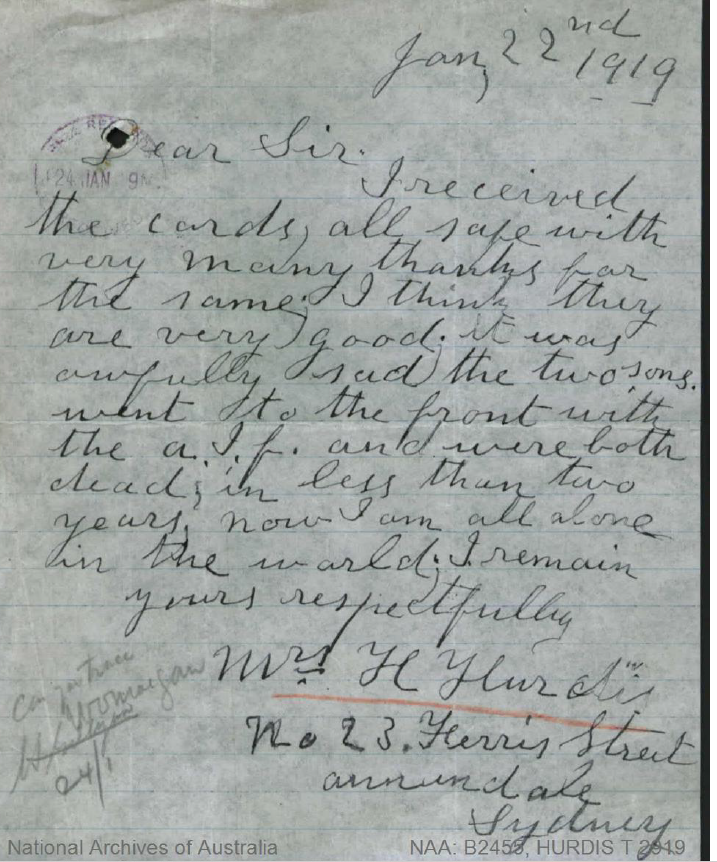 Jan, 22nd
1919
Dear Sir.
I received
the cards, all safe with
very many thanks for
the same; I think they
are very good; it was
awfully sad, the two sons.
went to the front with
the a.I.f. and were both
dead; in less than two
years, now I am all alone
in the world; I remain
yours respectfully
Mrs H Hurdis
No 23. Ferris Street
annundale
Sydney
24 JAN 9
24/1
National Archives of Australia
NAA: B2455, HURDIS T 2919